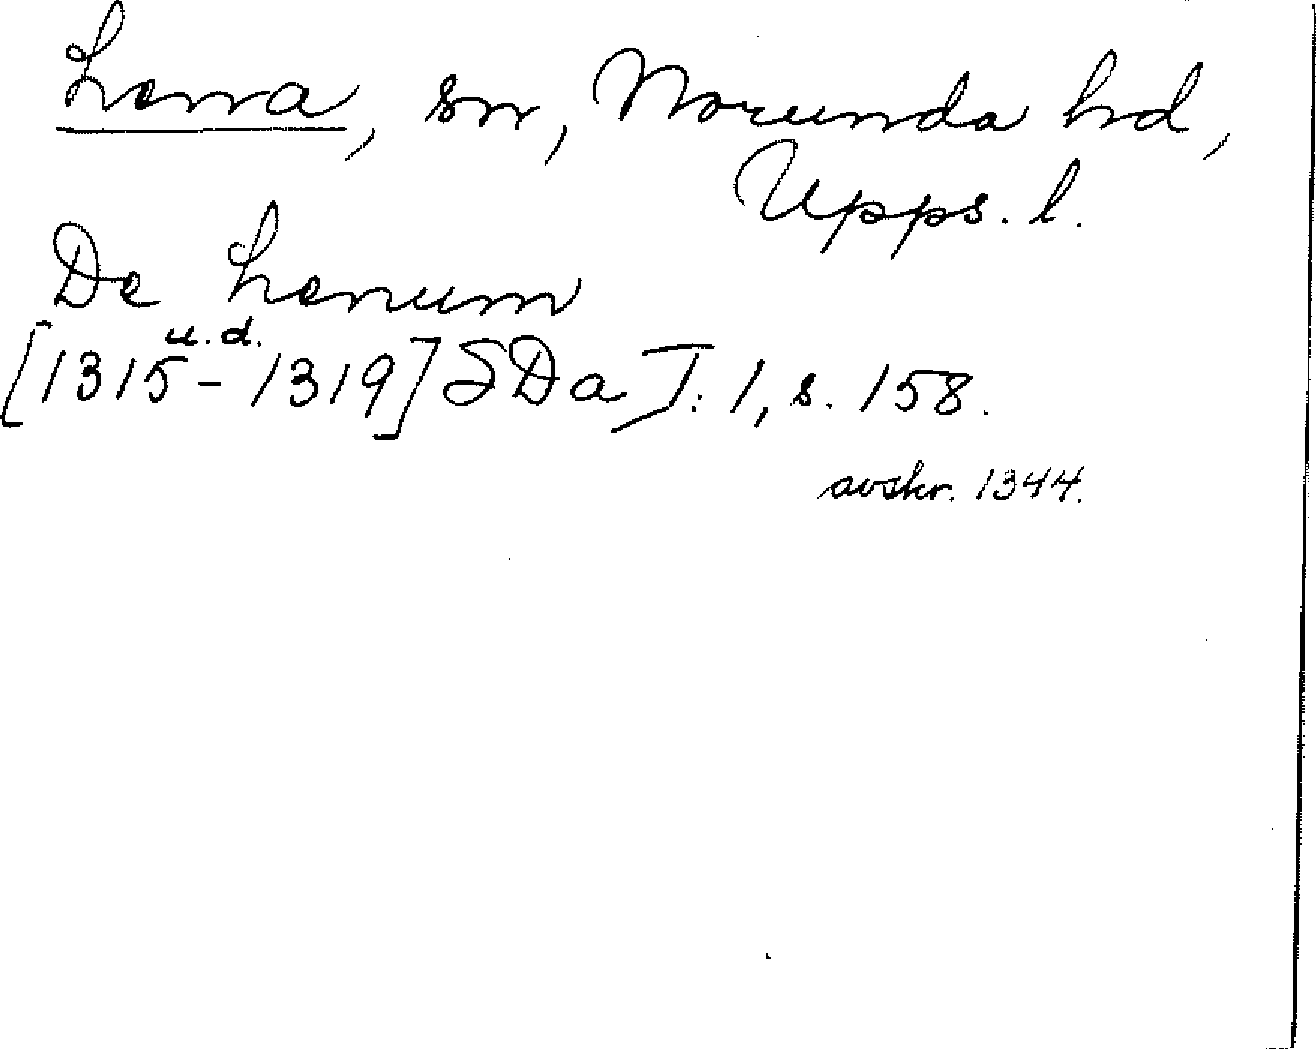 Lena, sn, Norunda hd,
Upps. l.
De Lenum
u. d.
[1315-1319] SDa I:1, s. 158.
avskr. 1344.